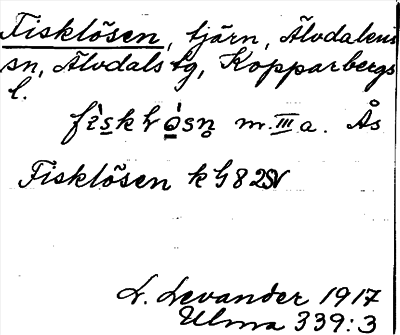 Fisklösen, tjärn, Älvdalens
sn, Älvdals tg, Kopparbergs
l.
m. III a. Ås
Fisklösen k G 8 2 SV
L. Levander 1917
Ulma 339:3